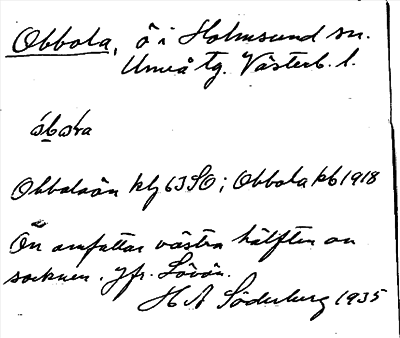 Obbola, ö i Holmsund sn.
Umeå tg. Västerb. l.
Obbolaön klj 63SO; Obbola kb 1918
Ön omfattar västra hälften av
socknen. Jfr. Lövön.
H A Söderberg 1935